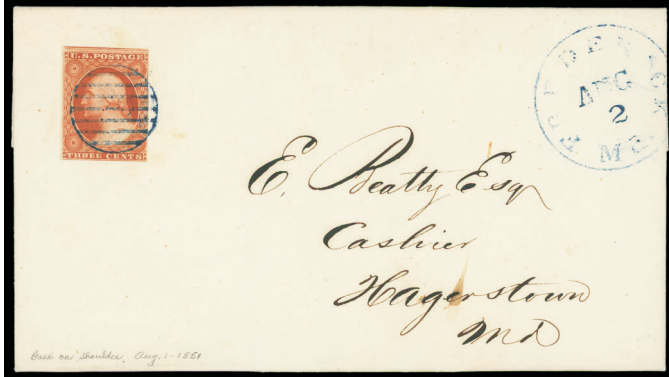 U.S. POSTAGE
THREE CENTS
FREDERICK
AUG
2
MD.
E. Beatty Esqr
Cashier
Hagerstown
Md
on shoulder, Aug. 1 - 1851